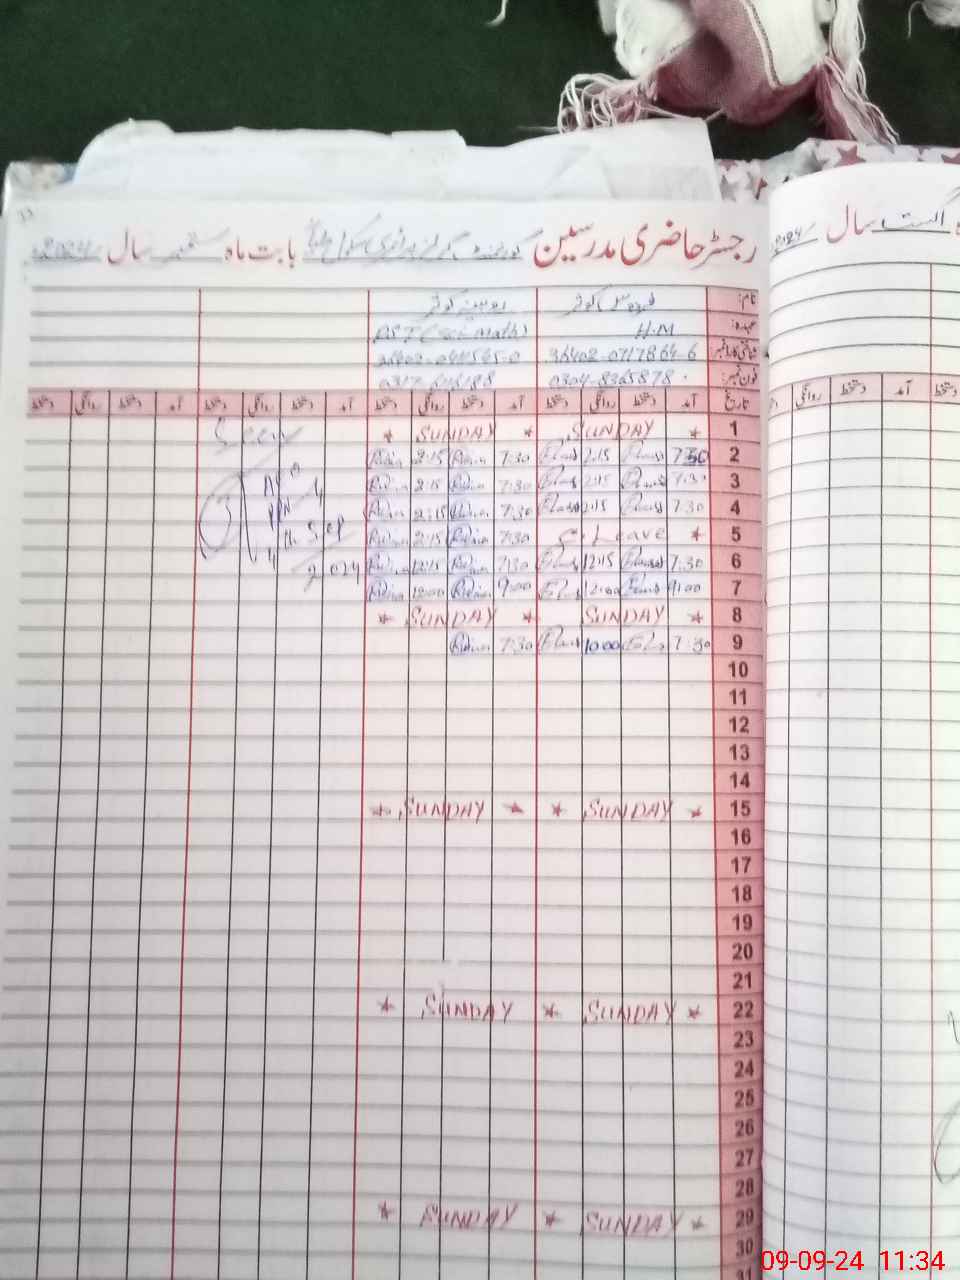 رجسٹر حاضری مدرسین گورنمنٹ گرلز پرائمری سکول بابت ماہ ستمبر سال 2024ء
اگست سال 2024ء
نام: فردوس کوثر روبینہ کوثر
عہدہ: H.M PST (Sci-math)
شناختی کارڈ نمبر 36402-0717864-6
فون نمبر: 0304-8365878
تاریخ آمد دستخط روانگی دستخط آمد دستخط روانگی دستخط آمد دستخط روانگی دستخط آمد دستخط روانگی دستخط
1 * SUNDAY * SUNDAY *
Seen
2 7:30 2:15 7:30 2:15
3 7:30 2:15 7:30 2:15
4 7:30 2:15 7:30 2:15
5 * C. Leave 7:30 2:15
6 7:30 12:15 7:30 12:15
7 9:00 12:00 9:00 12:00
4th Sep
2024
8 * SUNDAY * SUNDAY *
9 7:30 10:00 7:30
10
11
12
13
14
15 * SUNDAY * * SUNDAY *
16
17
18
19
20
21
22 * SUNDAY * SUNDAY *
23
24
25
26
27
28
29 * SUNDAY * SUNDAY *
30
31
09-09-24 11:34